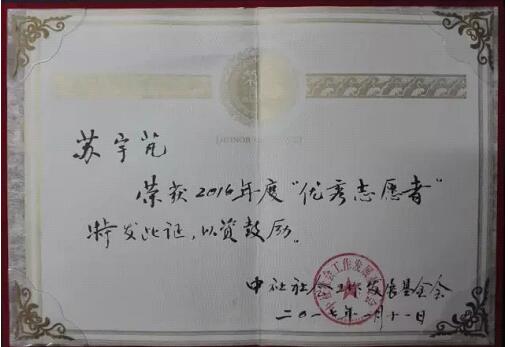 HONOR
苏宇芃
荣获2016年度“优秀志愿者”
特发此证,以资鼓励。
中社社会工作发展基金会
二〇一七年一月十一日